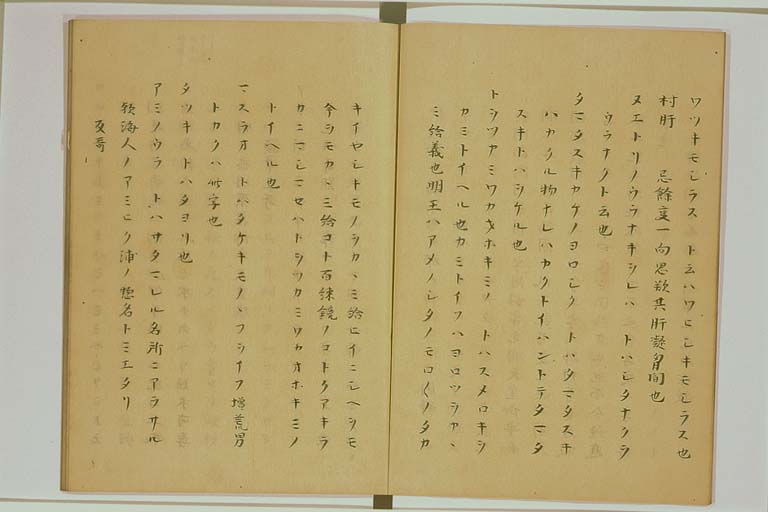 ワツキモシラス トハワヒシキモシラス也
村肝 忌餘裏一向思欲其肝凝身同也
ヌエトリノウラナキシレハ トハシタナクヲ
ウラナクト云也
タマタスキカケノヨロシク トハタマタスキ
ハカクル物ナレハカクトイハントテタマタ
スキトハシケル也
トシツヤミワカオホキミノ トハスメロキシ
カミトイヘル也カミトイフハヨロツヲヤヽ
ミ給義也明王ハアメノシタノモロ〱ノタカ
キイヤシキモノヲカヽミ給ヒイニシヘシモ
今シモカヽミ給コト百練鏡ノコトクアキラ
カニマシマセハトシツカミワカオホキミノ
トイヘル也
マスラオ トハタケキモノヽフヲイフ 増荒男
トカクハ此字也
タツキ トハタヨリ也
アミノウラ トハサタマレル名所ニアラサル
歟海人ノアミヒク浦ノ惣名トミエタリ
反哥